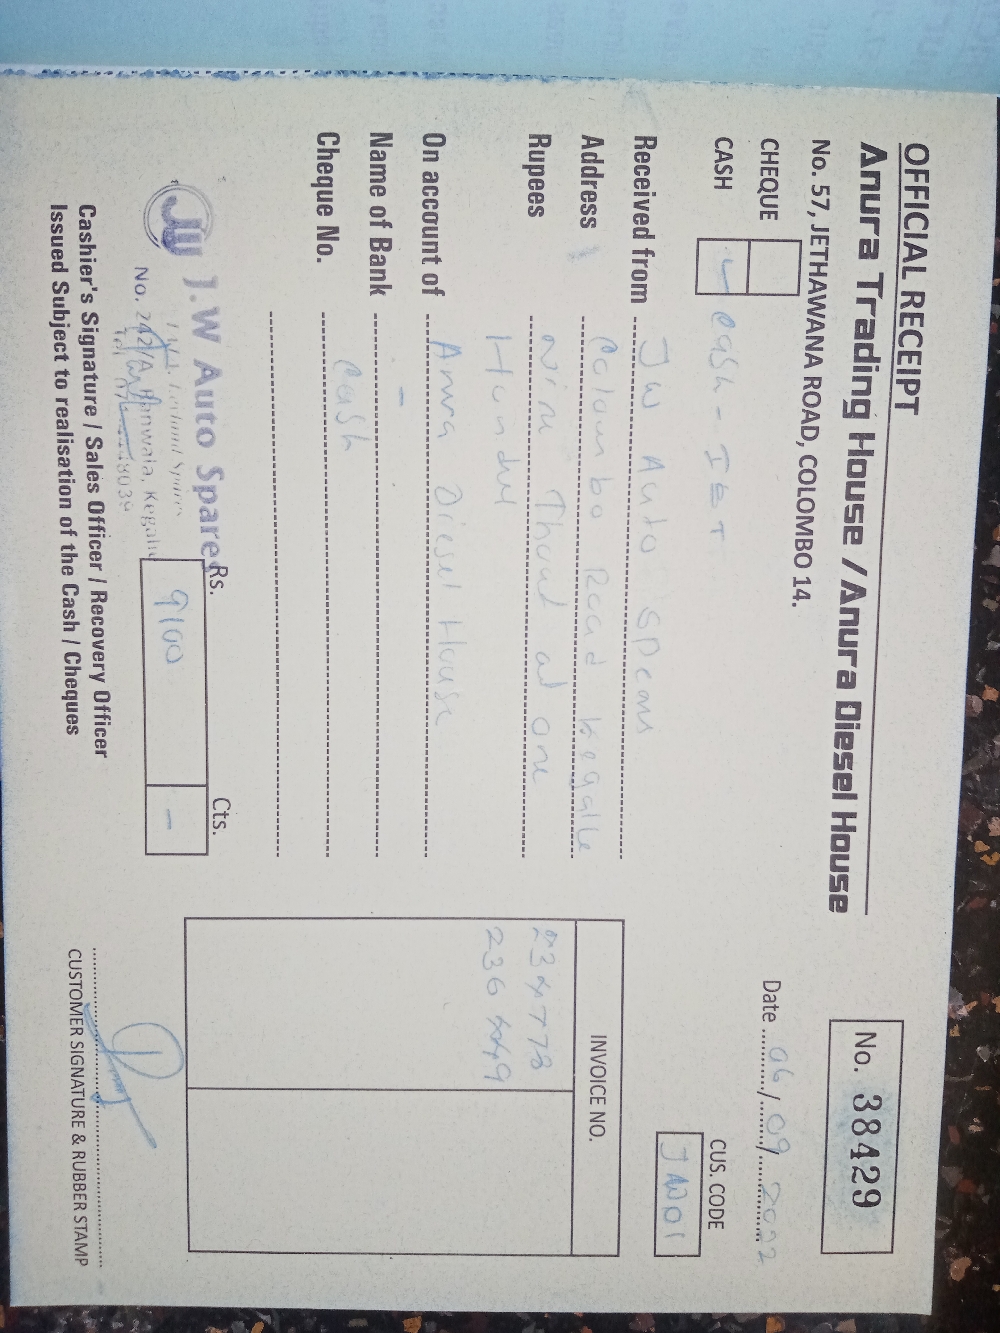 OFFICIAL RECEIPT
Anura Trading House / Anura Diesel House
No. 57, JETHAWANA ROAD, COLOMBO 14.
No. 38429
Date 06 / 09 / 2022
CHEQUE
CASH Cash -
CUS. CODE
JW01
Received from JW Auto
Address Colombo Road Kegalle
Rupees Nine one
Hundred
On account of Anura Diesel House
Name of Bank -
Cheque No. Cash
INVOICE NO.
J.W Auto Spares
No. 242/A, Ranwala, Kegalle
Rs. Cts.
9100 -
Cashier's Signature / Sales Officer / Recovery Officer
Issued Subject to realisation of the Cash / Cheques
CUSTOMER SIGNATURE & RUBBER STAMP